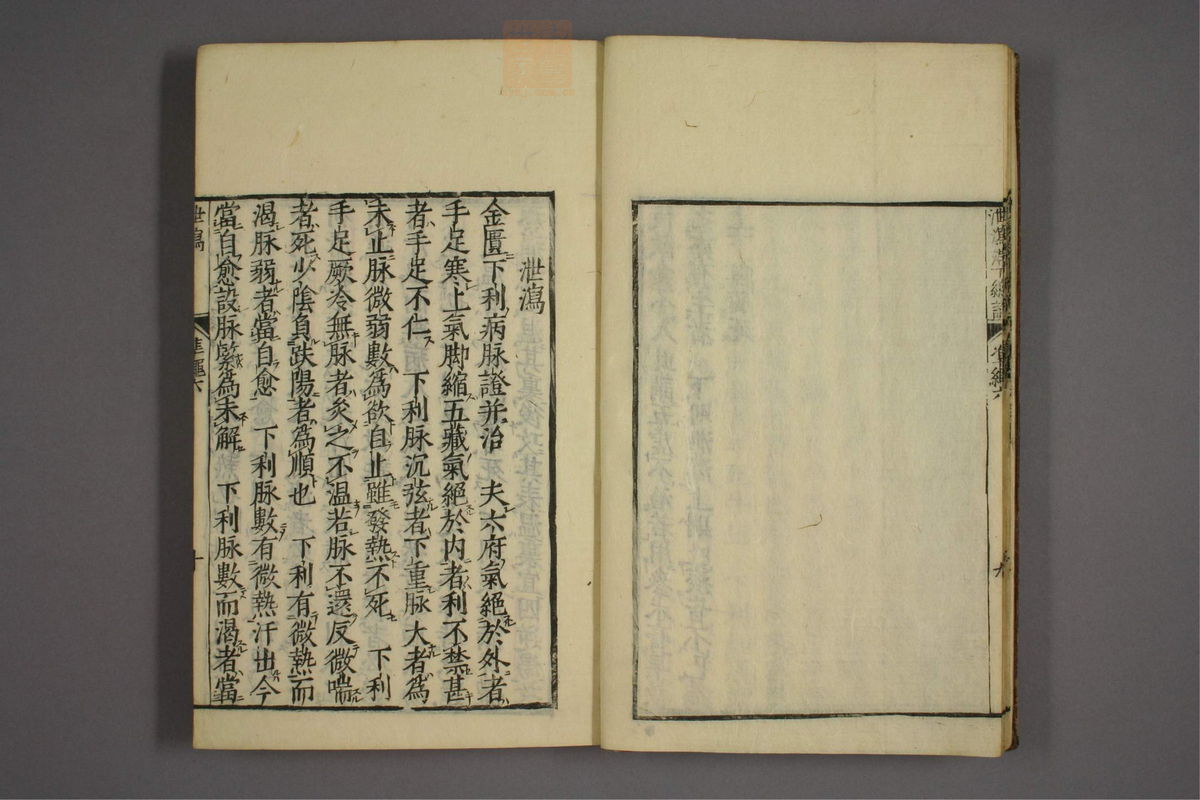 泄瀉
金匱下利病脉證并治　夫六府氣絕於外者
手足寒上氣脚縮五藏氣絕於内者利不禁甚
者手足不仁　下利脉沉弦者下重脉大者爲
未止脉微弱數爲欲自止雖發熱不死　下利
手足厥冷無脉者灸之不温若脉不還反微喘
者死少陰負趺陽者爲順也　下利有微熱而
渴脉弱者當自愈　下利脉數有微熱汗出今
當自愈設脉緊爲未解　下利脉數而渴者當